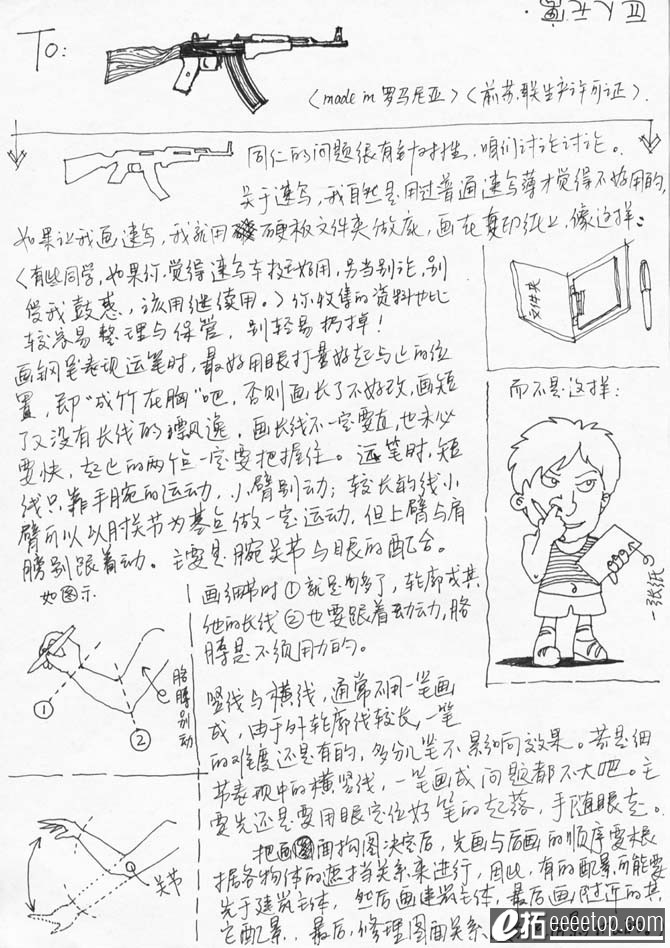 To:
(made in 罗马尼亚)(前苏联生产许可证).
同仁的问题很有针对性,咱们讨论讨论。
关于速写,我自然是用过普通速写薄才觉得不好用的,
如果让我画速写,我就用硬板文件夹做底,画在复印纸上,像这样:
(有些同学,如果你觉得速写本挺好用,另当别论,别
受我鼓惑,该用继续用。)你收集的资料也比
较容易整理与保管,别轻易扔掉!
文件夹
画钢笔表现运笔时,最好用眼打量好起与止的位
置,即“成竹在胸”吧,否则画长了不好改,画短
了又没有长线的飘逸,画长线不一定要直,也未必
要快,起止的两个点一定要把握住。运笔时,短
线只靠手腕的运动,小臂别动;较长的线小
臂可以以肘关节为基点做一定运动,但上臂与肩
膀别跟着动。主要是腕关节与眼的配合。
而不是这样:
一张纸
如图示
①
②
胳膊别动
关节
画细节时①就足够了,轮廓或其
他的长线②也要跟着动动,胳
膊是不须用力的。
竖线与横线,通常不用一笔画
成,由于外轮廓线较长,一笔
的难度还是有的,多分几笔不影响效果。若是细
节表现中的横竖线,一笔画成问题都不大吧。主
要先还是要用眼定位好笔的起落,手随眼走。
把画面构图决定后,先画与后画的顺序要根
据各物体的遮挡关系来进行,因此,有的配景可能要
先于建筑主体,然后画建筑主体,最后画附近的其
它配景,最后,修理图面关系
e拓 eeeetop.com